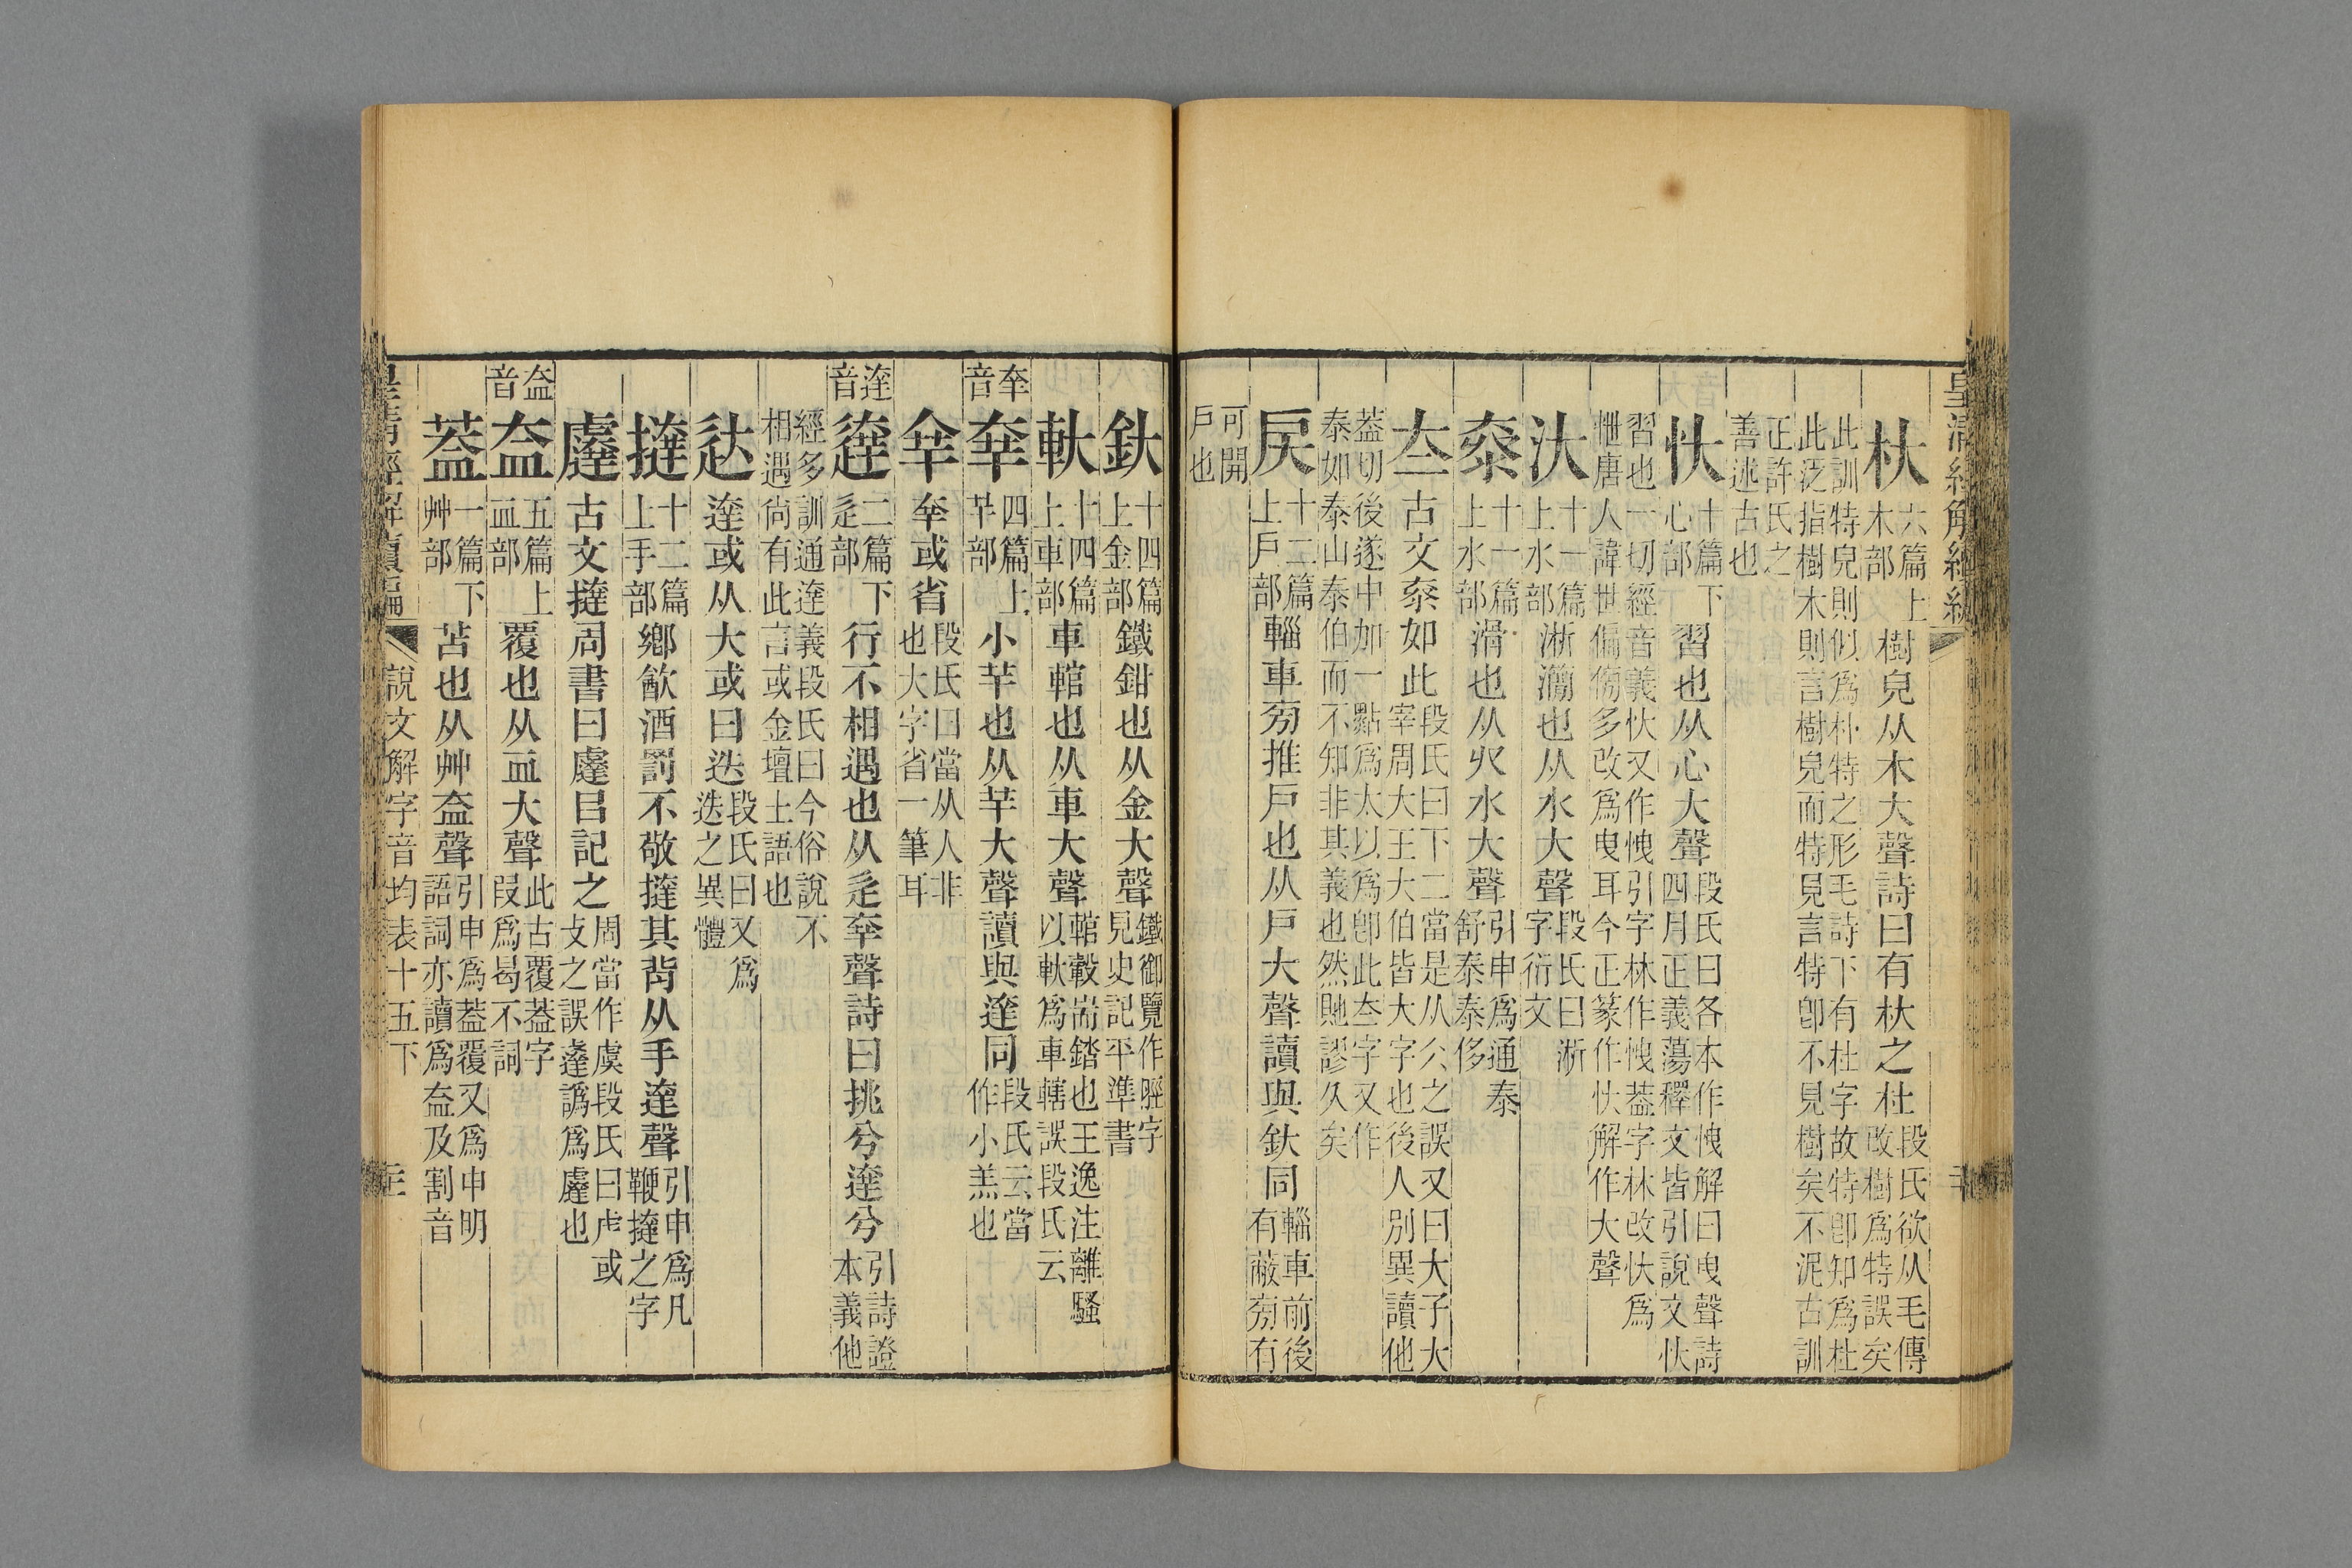 皇清經解續編
杕 六篇上木部 樹皃从木大聲詩曰有杕之杜 段氏欲从毛傳改樹爲特誤矣
此訓特皃則似爲朴特之形毛詩下有杜字故特卽知爲杜
此泛指樹木則言樹皃而特見言特卽不見樹矣不泥古訓
正許氏之
善述古也
忕 十篇下心部 習也从心大聲 段氏曰各本作愧解曰曳聲詩四月正義蕩釋文皆引說文忕
習也一切經音義忕又作愧引字林作愧蓋字林改忕爲
怈唐人諱世偏傍多改爲曳耳今正篆作忕解作大聲
汏 十一篇上水部 淅灡也从水大聲 段氏曰淅字衍文
泰 十一篇上水部 滑也从𠬞水大聲 引申爲通泰舒泰泰侈
夳 古文泰如此 段氏曰下二當是从仌之誤又曰大子大宰周大王大伯皆大字也後人別異讀他
蓋切後遂中加一點爲太以爲卽此夳字又作
泰如泰山泰伯而不知非其義也然貤謬久矣
戾 十二篇上戶部 輜車旁推戶也从戶大聲讀與釱同 輜車前後有蔽旁有
可開
戶也
釱 十四篇上金部 鐵鉗也从金大聲 鐵御覽作脛字見史記平準書
軑 十四篇上車部 車輨也从車大聲 輨轂耑錔也王逸注離騷以軑爲車轄誤段氏云
羍音
羍 四篇上羊部 小羊也从羊大聲讀與達同 段氏云當作小羔也
𦍒 羍或省 段氏曰當从人非也大字省一筆耳
達音
達 二篇下辵部 行不相遇也从辵羍聲詩曰挑兮達兮 引詩證本義他
經多訓通達義段氏曰今俗說不
相遇尙有此言或金壇土語也
达 達或从大或曰迭 段氏曰又爲迭之異體
撻 十二篇上手部 鄉飮酒罰不敬撻其背从手達聲 引申爲凡鞭撻之字
𢟍 古文撻周書曰𢟍㠯記之 周當作虞段氏曰虍或攴之誤達譌爲𢟍也
盇音
盇 五篇上皿部 覆也从皿大聲 此古覆蓋字叚爲曷不詞
蓋 一篇下艸部 苫也从艸盇聲 引申爲蓋覆又爲申明語詞亦讀爲盇及割音
皇清經解續編 說文解字音均表十五下